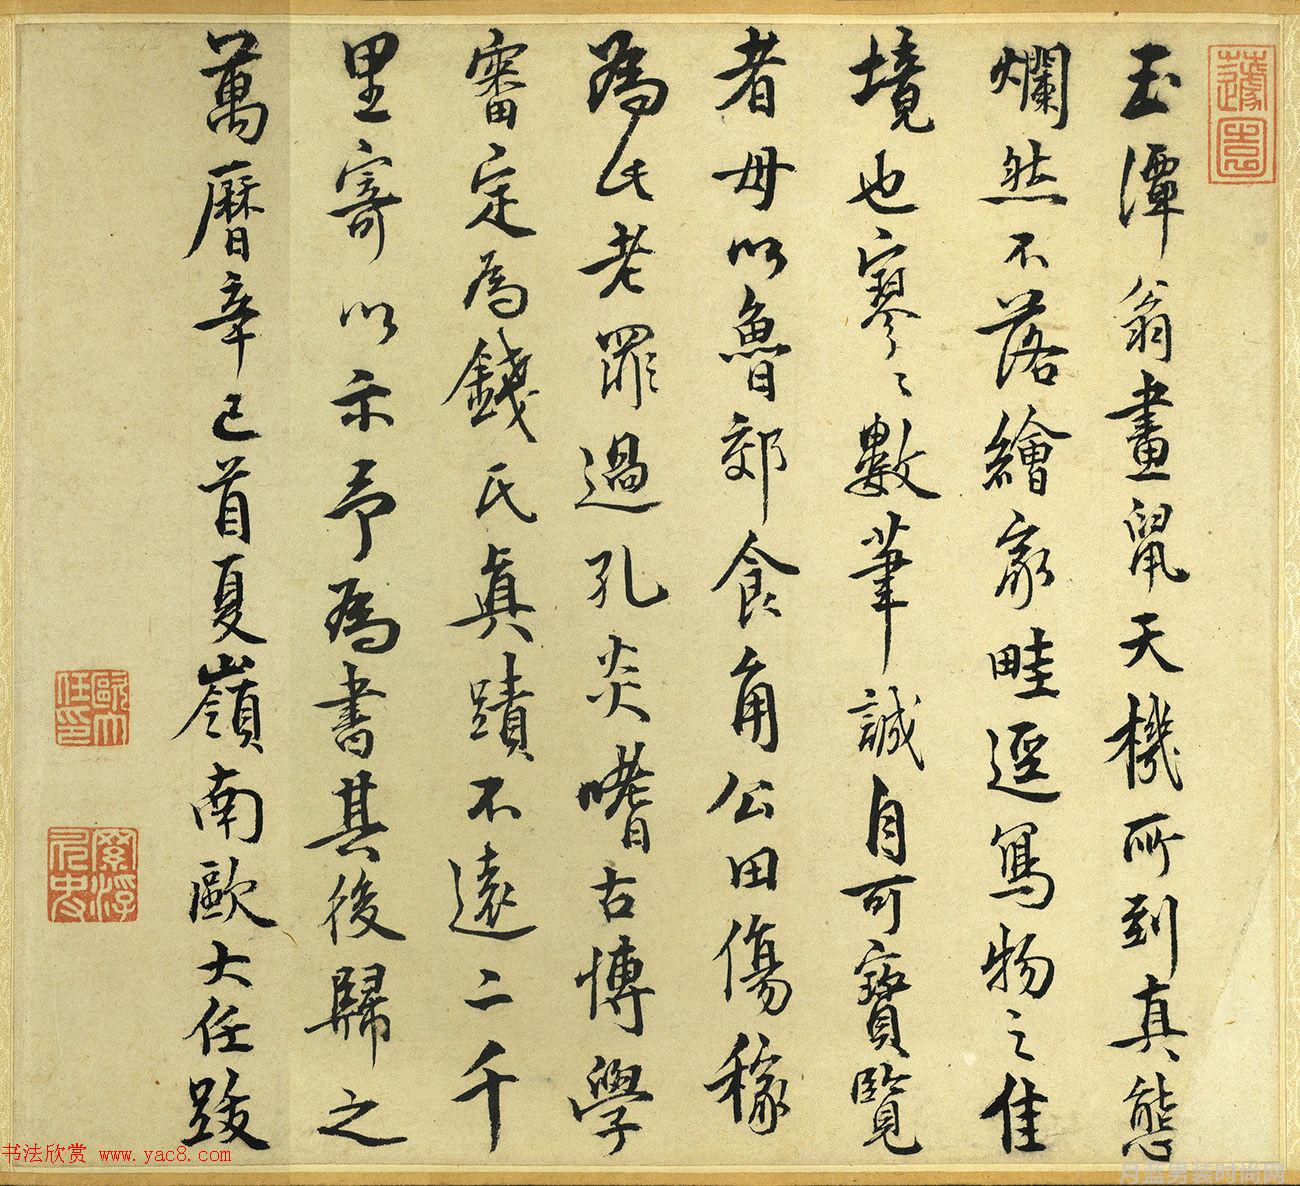 玉潭翁畫鼠天機所到真態
爛然不落繪家畦逕寫物之佳
境也寥〻數筆誠自可寶覽
者毋以魯郊食角公田傷稼
為氏老罪過孔炎嗜古博學
審定為錢氏真蹟不遠二千
里寄以示予為書其後歸之
萬曆辛巳首夏嶺南歐大任跋
蘧園
歐大任印
书法欣赏 www.yac8.com
月蓝男装时尚网